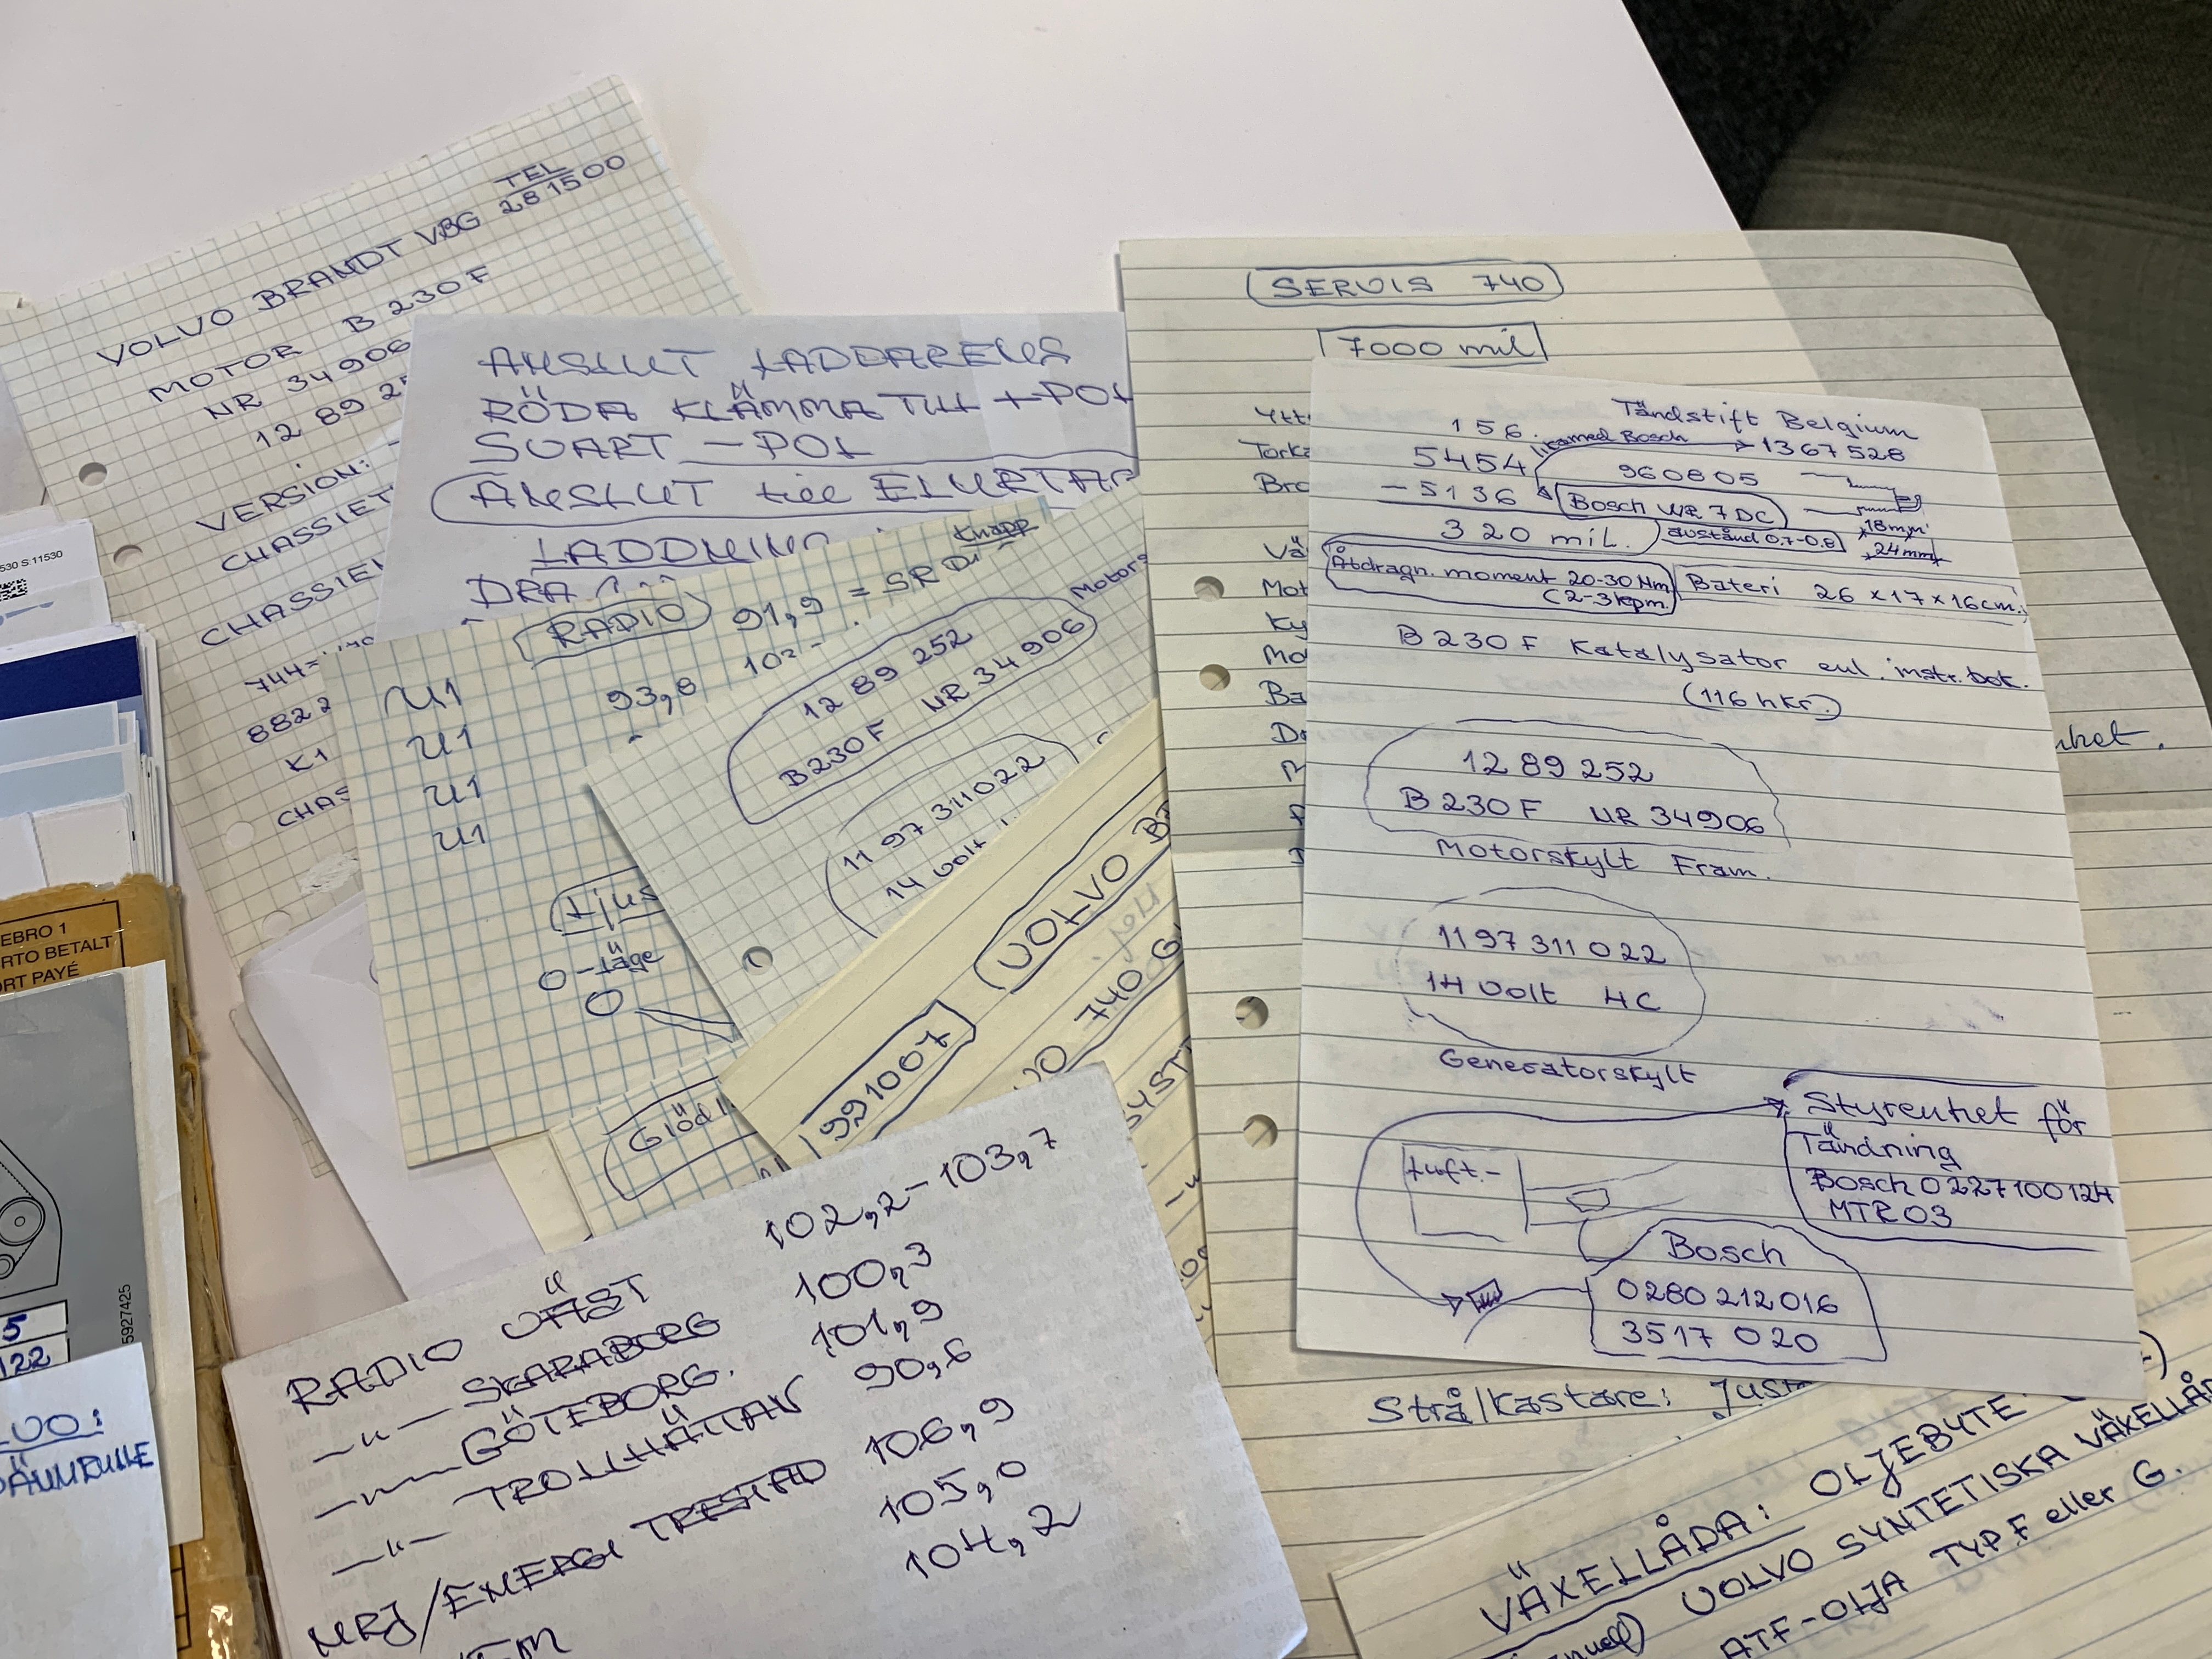 VOLVO BRANDT VBG TEL
281500
MOTOR B 230 F
NR 34906
12 89 25
VERSION:
CHASSIET
CHASSIE
744=
8822
K1
CHAS
ANSLUT LADDARENS
RÖDA KLÄMMA TILL +POL
SVART -POL
ANSLUT till ELURTAG
LADDNING
DRA
RADIO 91,9 = SR
Knapp
U1 93,8
U1
U1
U1
Ljus
0-läge
0
Motors
12 89 252
B230F NR 34906
1197311022
14 volt
Glödl
991007
VOLVO B
VO 740 G
SYST
RADIO VÄST 102,2-103,7
-"- SKARABORG 100,3
-"- GÖTEBORG. 101,9
-"- TROLLHÄTTAN 90,6
NRJ/ENERGI TRESTAD 106,9
105,0
104,2
SERVIS 740
7000 mil
Ytt
Torka
Bro
Vä
Mot
Ky
Mo
Ba
156 Tändstift Belgium
lika med Bosch 1367528
5454 960805
-5136 Bosch WR 7DC
320 mil. avstånd 0,7-0,8 18mm
24mm
Åtdragn. moment 20-30 Nm
(2-3 kpm. Bateri 26 x 17 x 16cm.
B 230 F Katalysator enl. instr.bok.
(116 hkr.)
12 89 252
B 230 F NR 34906
Motorskylt Fram.
1197 311 022
14 Volt HC
Generatorskylt
Styrenhet för
Tändning
Bosch 0227100124
MTR 03
Luft.-
Bosch
0280 212 016
3517 020
nhet.
Strålkastare: Just
VÄXELLÅDA: OLJEBYTE
VOLVO SYNTETISKA VÄXELLÅ
ATF-OLJA TYP.F eller G.
530 S:11530
EBRO 1
RTO BETALT
RT PAYÉ
5927425
5
122
LVO: